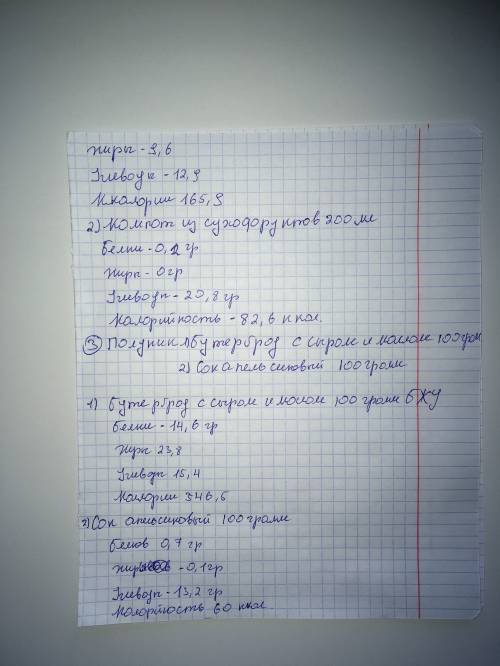 Жиры - 9,6
Углеводы - 12,9
Ккалории 165,9
2) Компот из сухофруктов 200 мл
Белки - 0,2 гр
Жиры - 0 гр
Углеводы - 20,8 гр
Калорийность - 82,6 ккал.
③ Полдник 1) бутерброд с сыром и маслом 100 грам
2) Сок апельсиновый 100 грамм
1) бутерброд с сыром и маслом 100 грамм БЖУ
Белки - 14,6 гр
Жиры 23,8
Углеводы 15,4
Калории 346,6
2) Сок апельсиковый 100 грамм
белков 0,7 гр
Жиров - 0,1 гр
Углеводы - 13,2 гр
Калорийность 60 ккал.